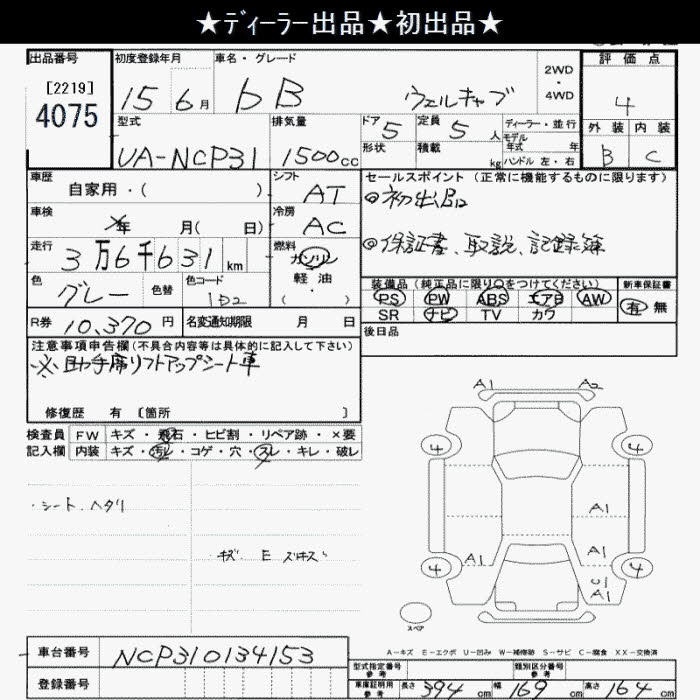 ★ディーラー出品★初出品★
出品番号 初度登録年月 車名・グレード 評価点
[2219]
4075
15 6月 bB ウェルキャブ 2WD・4WD 4
型式 排気量 ドア 5 定員 5人 ディーラー・並行 外装 内装
モデル年式 年
UA-NCP31 1500cc 形状 積載 kg ハンドル 左・右 B C
車歴 シフト セールスポイント(正常に機能するものに限ります)
自家用・( ) AT ◎初出品
車検 冷房
年 月( 日) AC
走行 燃料 ◎保証書、取説、記録簿
3万6千631km ガソリン
軽油
・( )
色 色替 色コード 装備品(純正品に限り○をつけてください) 新車保証書
グレー 1D2 PS PW ABS エアB AW 有 無
SR ナビ TV カワ
R券 10,370円 名変通知期限 月 日 後日品
注意事項申告欄(不具合内容等は具体的に記入して下さい)
※助手席リフトアップシート車
修復歴 有 〔箇所 〕
検査員 FW キズ・飛石・ヒビ割・リペア跡・×要
記入欄 内装 キズ・汚れ・コゲ・穴・スレ・キレ・破レ
A1 A2
4 4
・シート、ヘタリ
A1
キズ E
A1 A1
4 4
U1
A1
スペア
A-キズ E-エクボ U-凹み W-補修跡 S-サビ C-腐食 XX-交換済
車台番号 NCP310134153
型式指定番号参考 類別区分番号参考
登録番号 車庫証明用参考 長さ 394cm 幅 169cm 高さ 164cm